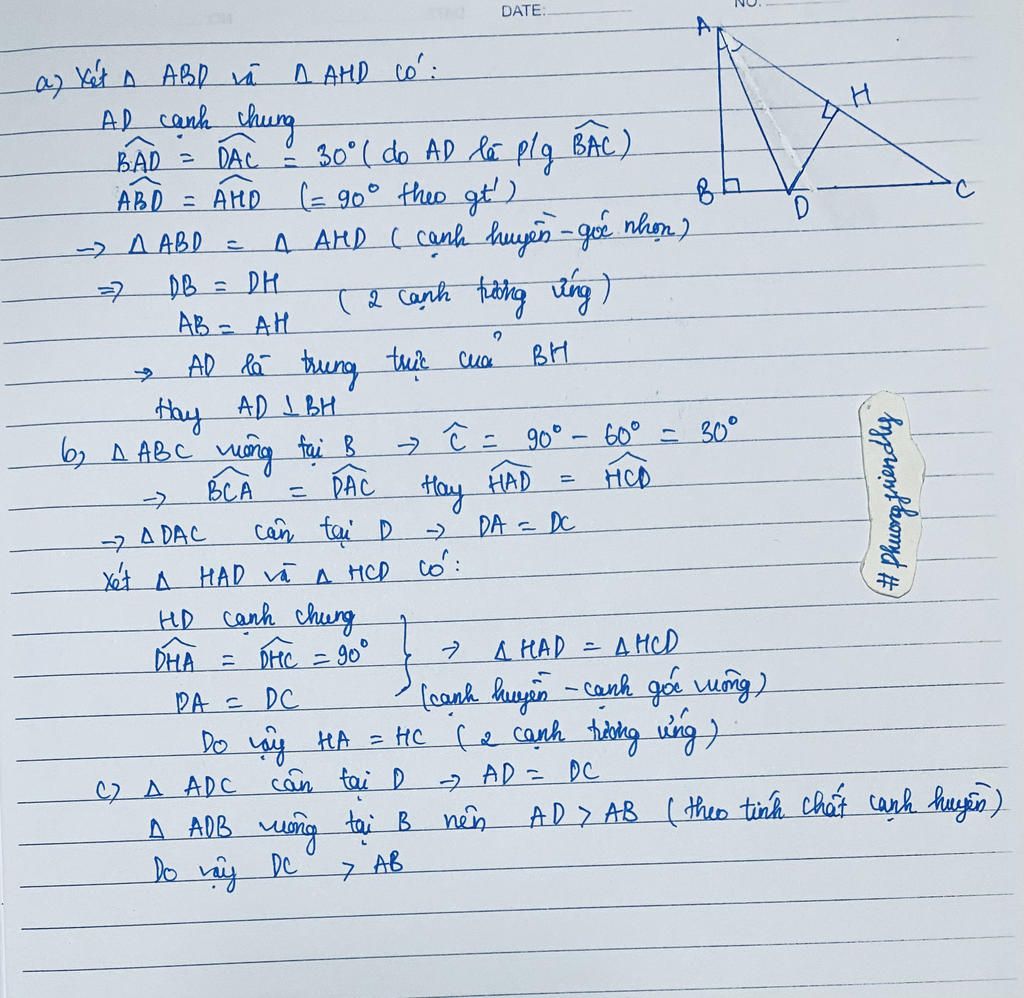 DATE:
NO.
A
H
B
D
C
a) Xét Δ ABD và Δ AHD có:
AD cạnh chung
B̂AD = D̂AC = 30° (do AD là p/g B̂AC)
ÂBD = ÂHD (= 90° theo gt)
→ Δ ABD = Δ AHD (cạnh huyền - góc nhọn)
⇒ DB = DH
(2 cạnh tương ứng)
AB = AH
→ AD là trung trực của BH
Hay AD ⊥ BH
b, Δ ABC vuông tại B → Ĉ = 90° - 60° = 30°
→ B̂CA = D̂AC Hay ĤAD = ĤCD
→ Δ DAC cân tại D → DA = DC
Xét Δ HAD và Δ HCD có:
HD cạnh chung
D̂HA = D̂HC = 90° } → Δ HAD = Δ HCD
DA = DC (cạnh huyền - cạnh góc vuông)
Do vậy HA = HC (2 cạnh tương ứng)
c) Δ ADC cân tại D → AD = DC
Δ ADB vuông tại B nên AD > AB (theo tính chất cạnh huyền)
Do vậy DC > AB